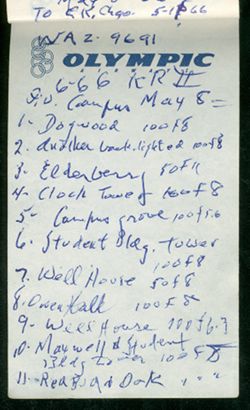 To EK, Chgo. 5-1 66
NAZ. 9691
OLYMPIC
6-6-6 KR II
I.U. Campus May 8 =
1- Dogwood 100 f 8
2. back-lighted 100 f 8
3- Elderberry 50 f 11
4- Clock Tower 100 f 8
5- Campus grove 100 f 5.6
6- Student Bldg. tower
100 f 8
7. Well House 50 f 8
8. Owen Hall 100 f 8
9- Well House 100 f 6.3
10- Maxwell & Student
Bldg tower 100 f 8
11- Red Bud & Dark " " "